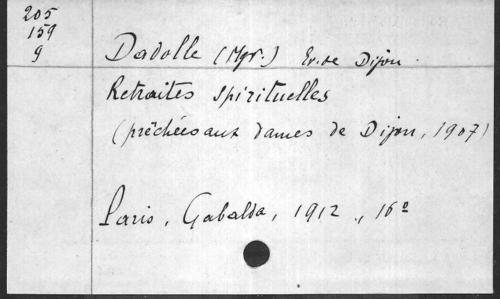 205
159
9
Dadolle (Mgr.) Ev. de Dijon.
Retraites spirituelles
(prêchées aux dames de Dijon, 1907)
Paris, Gabalda, 1912, 16º